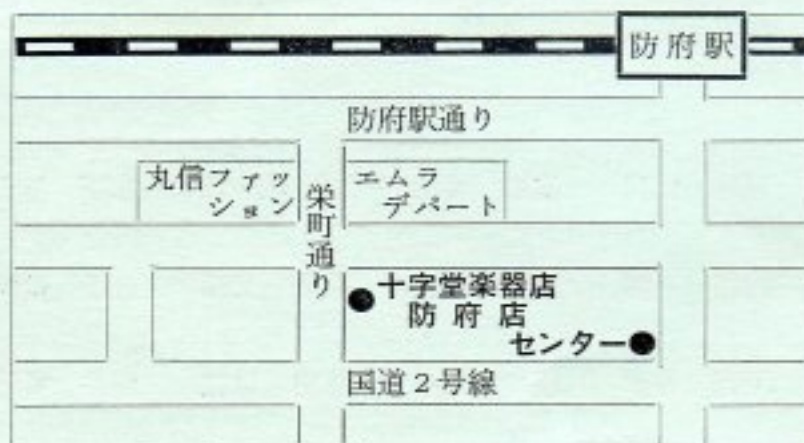 防府駅
防府駅通り
丸信ファッ
ション
エムラ
デパート
栄町通り
十字堂楽器店
防府店
センター
国道2号線